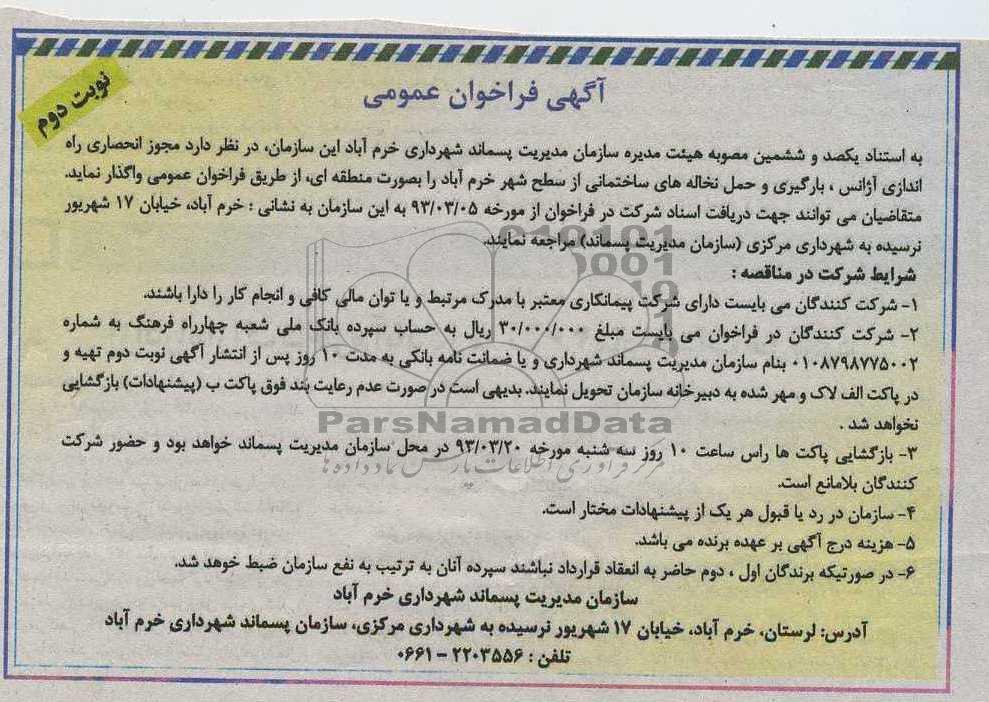 آگهی فراخوان عمومی
نوبت دوم
به استناد یکصد و ششمین مصوبه هیئت مدیره سازمان مدیریت پسماند شهرداری خرم آباد این سازمان، در نظر دارد مجوز انحصاری راه
اندازی آژانس ، بارگیری و حمل نخاله های ساختمانی از سطح شهر خرم آباد را بصورت منطقه ای، از طریق فراخوان عمومی واگذار نماید.
متقاضیان می توانند جهت دریافت اسناد شرکت در فراخوان از مورخه ۹۳/۰۳/۰۵ به این سازمان به نشانی : خرم آباد، خیابان ۱۷ شهریور
نرسیده به شهرداری مرکزی (سازمان مدیریت پسماند) مراجعه نمایند.
شرایط شرکت در مناقصه :
۱- شرکت کنندگان می بایست دارای شرکت پیمانکاری معتبر با مدرک مرتبط و یا توان مالی کافی و انجام کار را دارا باشند.
۲- شرکت کنندگان در فراخوان می بایست مبلغ ۳۰/۰۰۰/۰۰۰ ریال به حساب سپرده بانک ملی شعبه چهارراه فرهنگ به شماره
۰۱۰۸۷۹۸۷۷۵۰۰۲ بنام سازمان مدیریت پسماند شهرداری و یا ضمانت نامه بانکی به مدت ۱۰ روز پس از انتشار آگهی نوبت دوم تهیه و
در پاکت الف لاک و مهر شده به دبیرخانه سازمان تحویل نمایند. بدیهی است در صورت عدم رعایت بند فوق پاکت ب (پیشنهادات) بازگشایی
نخواهد شد .
۳- بازگشایی پاکت ها راس ساعت ۱۰ روز سه شنبه مورخه ۹۳/۰۳/۲۰ در محل سازمان مدیریت پسماند خواهد بود و حضور شرکت
کنندگان بلامانع است.
۴- سازمان در رد یا قبول هر یک از پیشنهادات مختار است.
۵- هزینه درج آگهی بر عهده برنده می باشد.
۶- در صورتیکه برندگان اول ، دوم حاضر به انعقاد قرارداد نباشند سپرده آنان به ترتیب به نفع سازمان ضبط خواهد شد.
سازمان مدیریت پسماند شهرداری خرم آباد
آدرس: لرستان، خرم آباد، خیابان ۱۷ شهریور نرسیده به شهرداری مرکزی، سازمان پسماند شهرداری خرم آباد
تلفن : ۲۲۰۳۵۵۶ - ۰۶۶۱
ParsNamadData
مرکز فرآوری اطلاعات پارس نماد داده ها